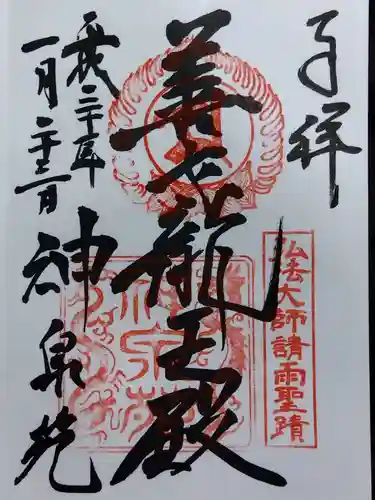 奉拝
弘法大師請雨聖蹟
善女龍王殿
平成三十年
一月二十三日
神泉苑